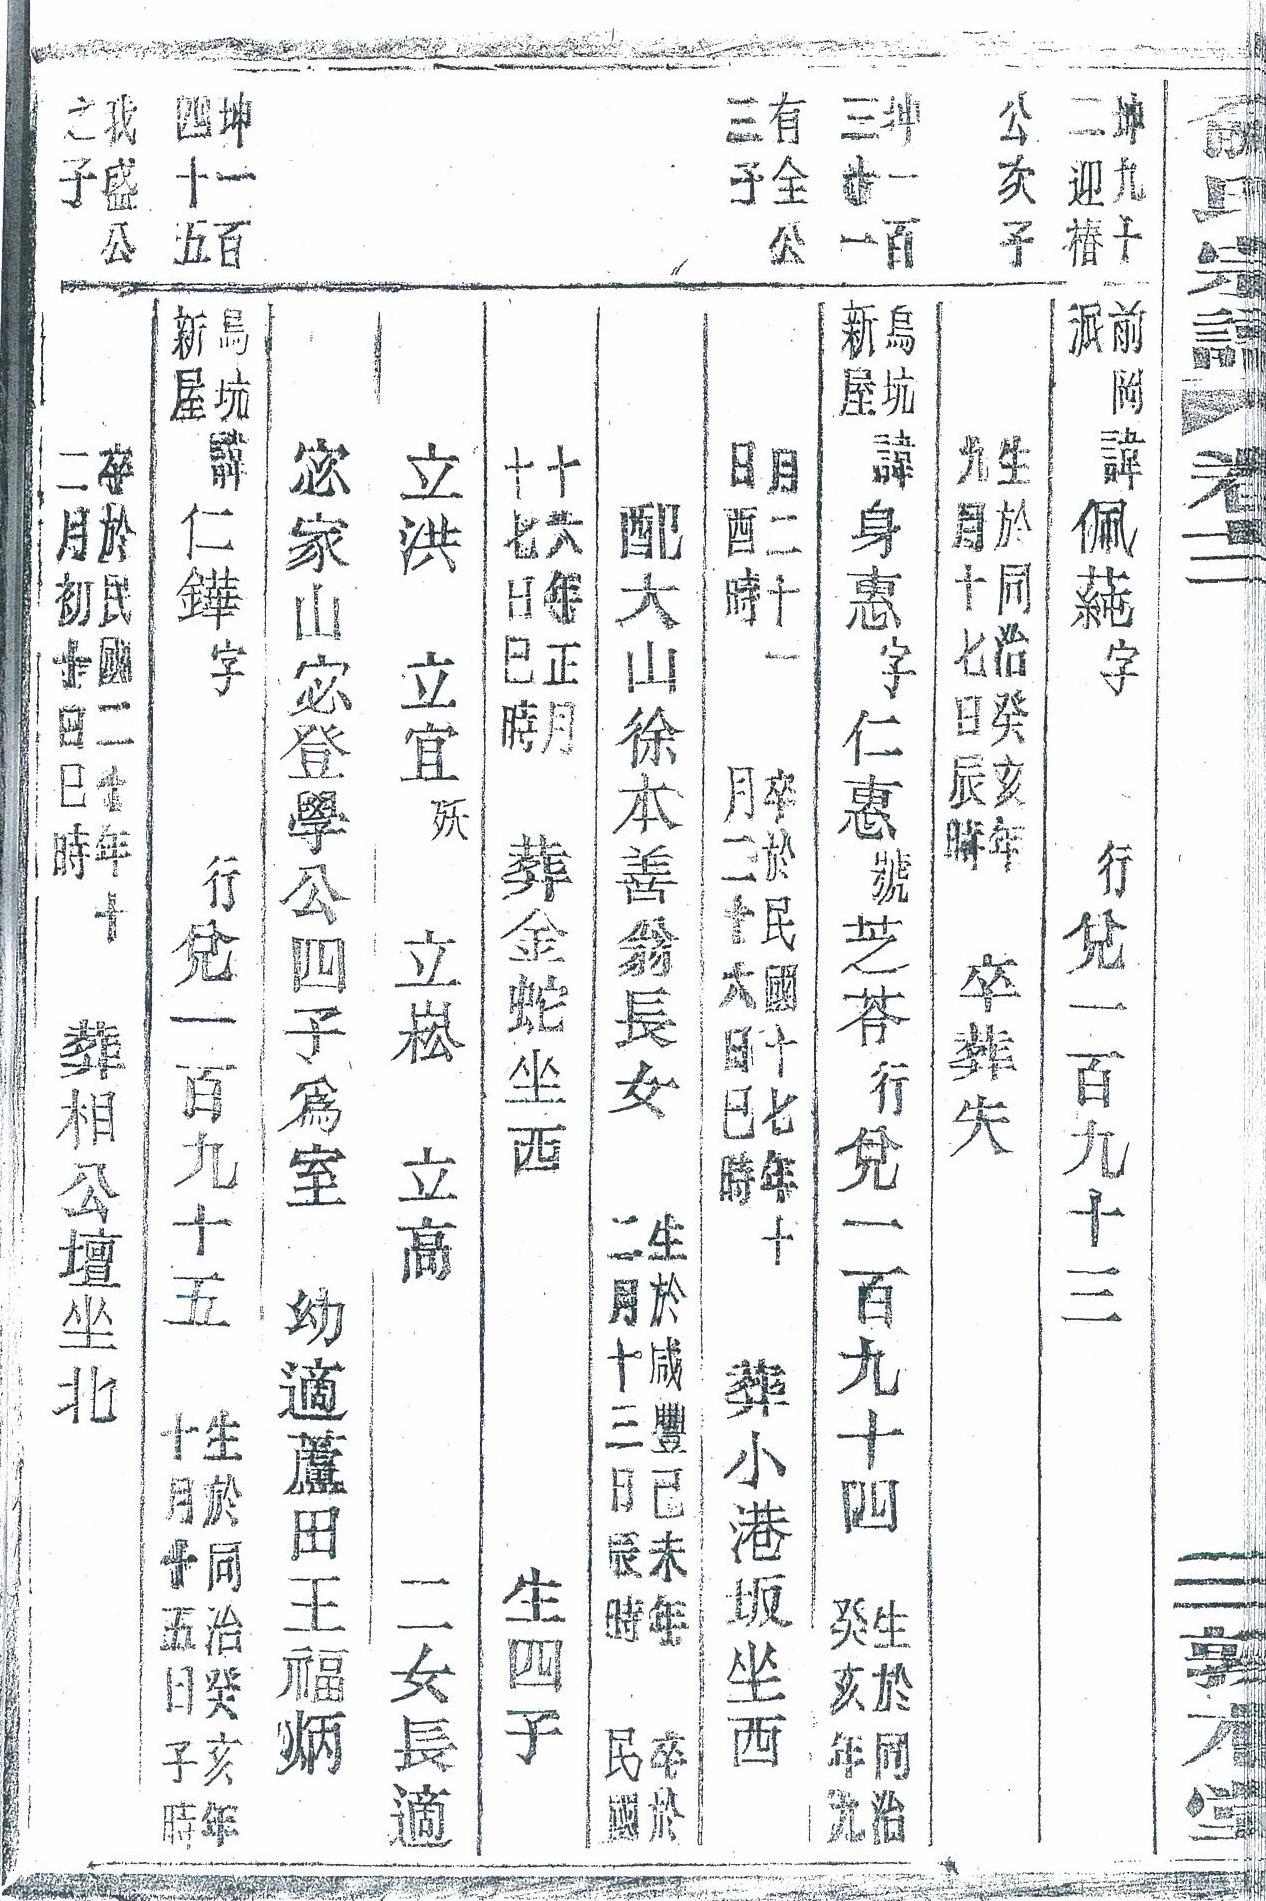 俞氏宗譜 卷二 三 敦本堂
坤九十
二迎椿
公次子
前岡
派
諱佩蒓字 行兌一百九十三
生於同治癸亥年
九月十七日辰時
卒葬失
坤一百
三廿一
有全公
三子
烏坑
新屋
諱身惠字仁惠號芝荅行兌一百九十四
生於同治
癸亥年九
月二十一
日酉時
卒於民國十七年十
月二十六日巳時
葬小港坂坐西
配大山徐本善翁長女
生於咸豐己未年
二月十三日辰時
卒於
民國
十六年正月
十七日巳時
葬金蛇坐西 生四子
立洪 立宜殀 立崧 立高 二女長適
宓家山宓登學公四子為室 幼適蘆田王福炳
坤一百
四十五
我盛公
之子
烏坑
新屋
諱仁鏵字 行兌一百九十五
生於同治癸亥年
十月十五日子時
卒於民國二十年十
二月初十日巳時
葬相公壇坐北